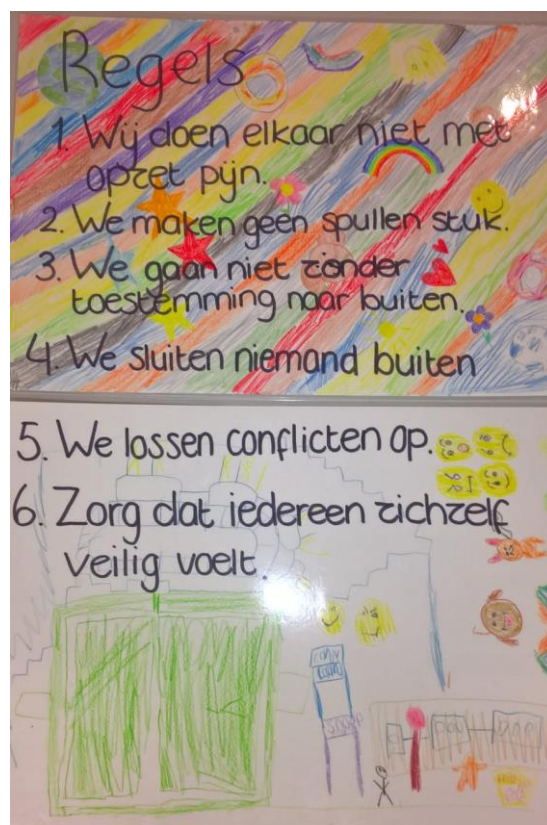 Regels
1. Wij doen elkaar niet met
opzet pijn.
2. We maken geen spullen stuk.
3. We gaan niet zonder
toestemming naar buiten.
4. We sluiten niemand buiten
5. We lossen conflicten op.
6. Zorg dat iedereen zichzelf
veilig voelt.